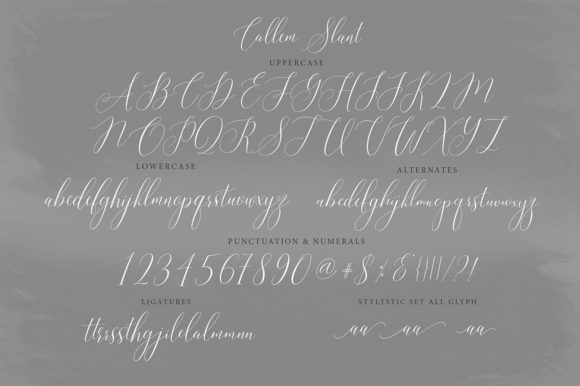 Callem Slant
UPPERCASE
ABCDEFGHIJKLM
NOPQRSTUVWXYZ
LOWERCASE
ALTERNATES
abcdefghijklmnopqrstuvwxyz
abcdefghijklmnopqrstuvwxyz
PUNCTUATION & NUMERALS
1234567890@#$%&{}[]|/?!
LIGATURES
STYLYSTIC SET ALL GLYPH
aa aa aa